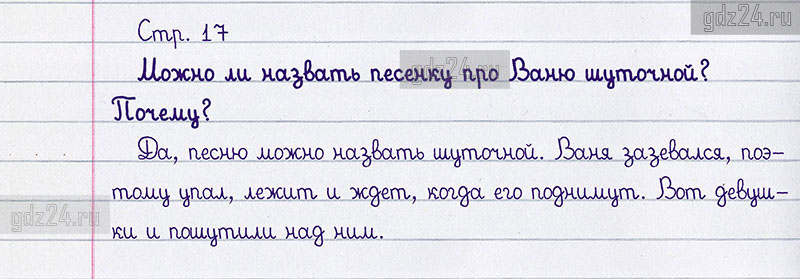 gdz24.ru
Стр. 17
Можно ли назвать песенку про Ваню шуточной?
gdz24.ru
Почему?
Да, песню можно назвать шуточной. Ваня зазевался, поэ-
тому упал, лежит и ждет, когда его поднимут. Вот девуш-
gdz24.ru
ки и пошутили над ним.